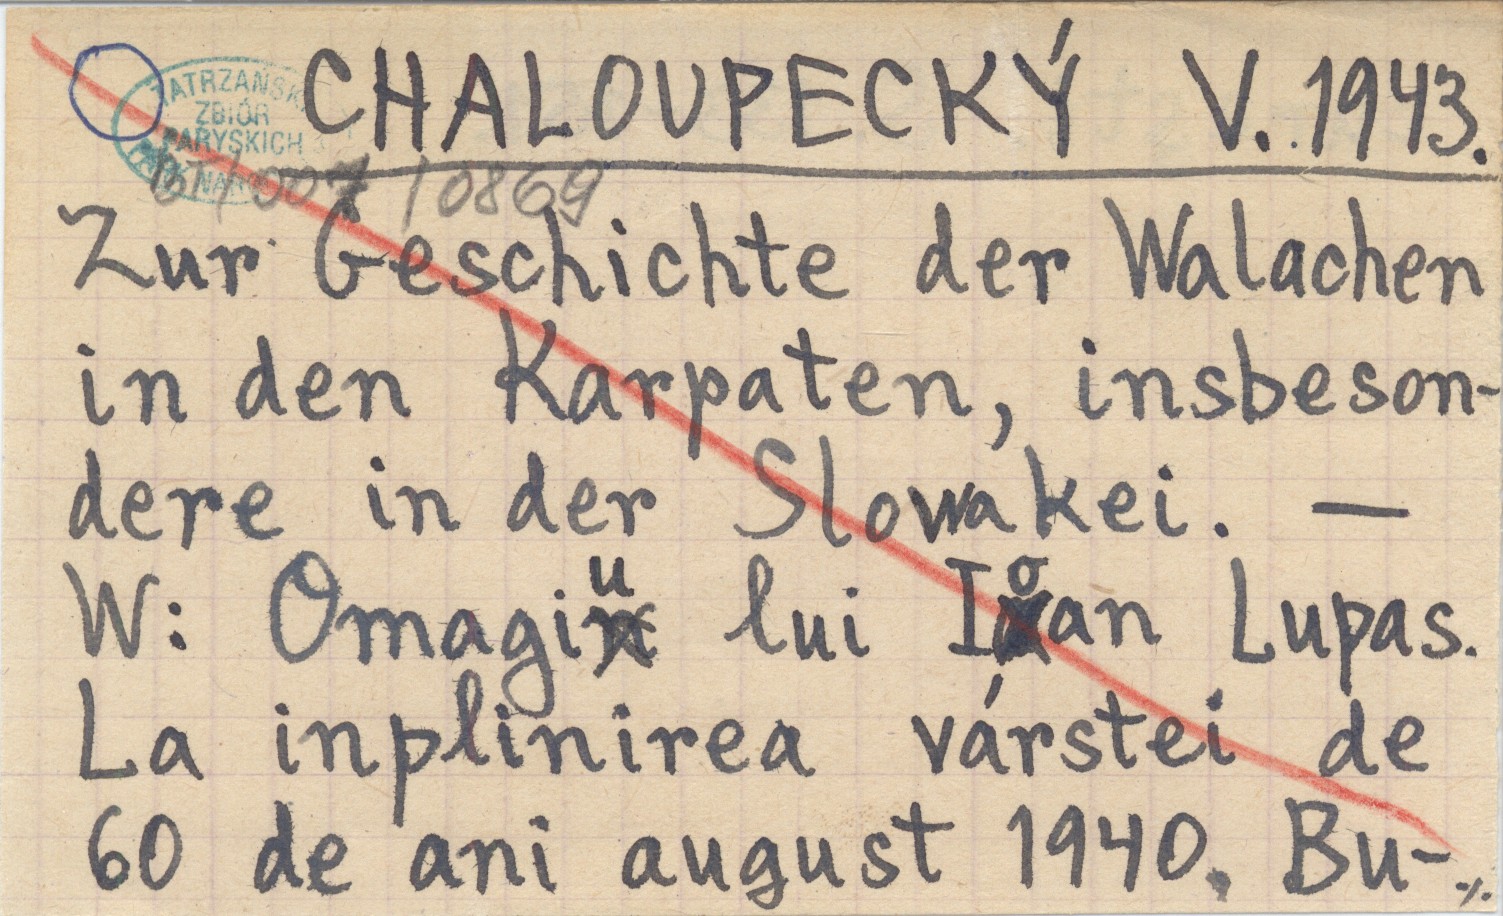 CHALOUPECKÝ V. 1943.
TATRZAŃSKI
ZBIÓR
PARYSKICH
PARK NAR
BT/007/0869
Zur Geschichte der Walachen
in den Karpaten, insbeson-
dere in der Slowakei. —
W: Omagiu lui Ioan Lupas.
La inplinirea várstei de
60 de ani august 1940. Bu-
./.